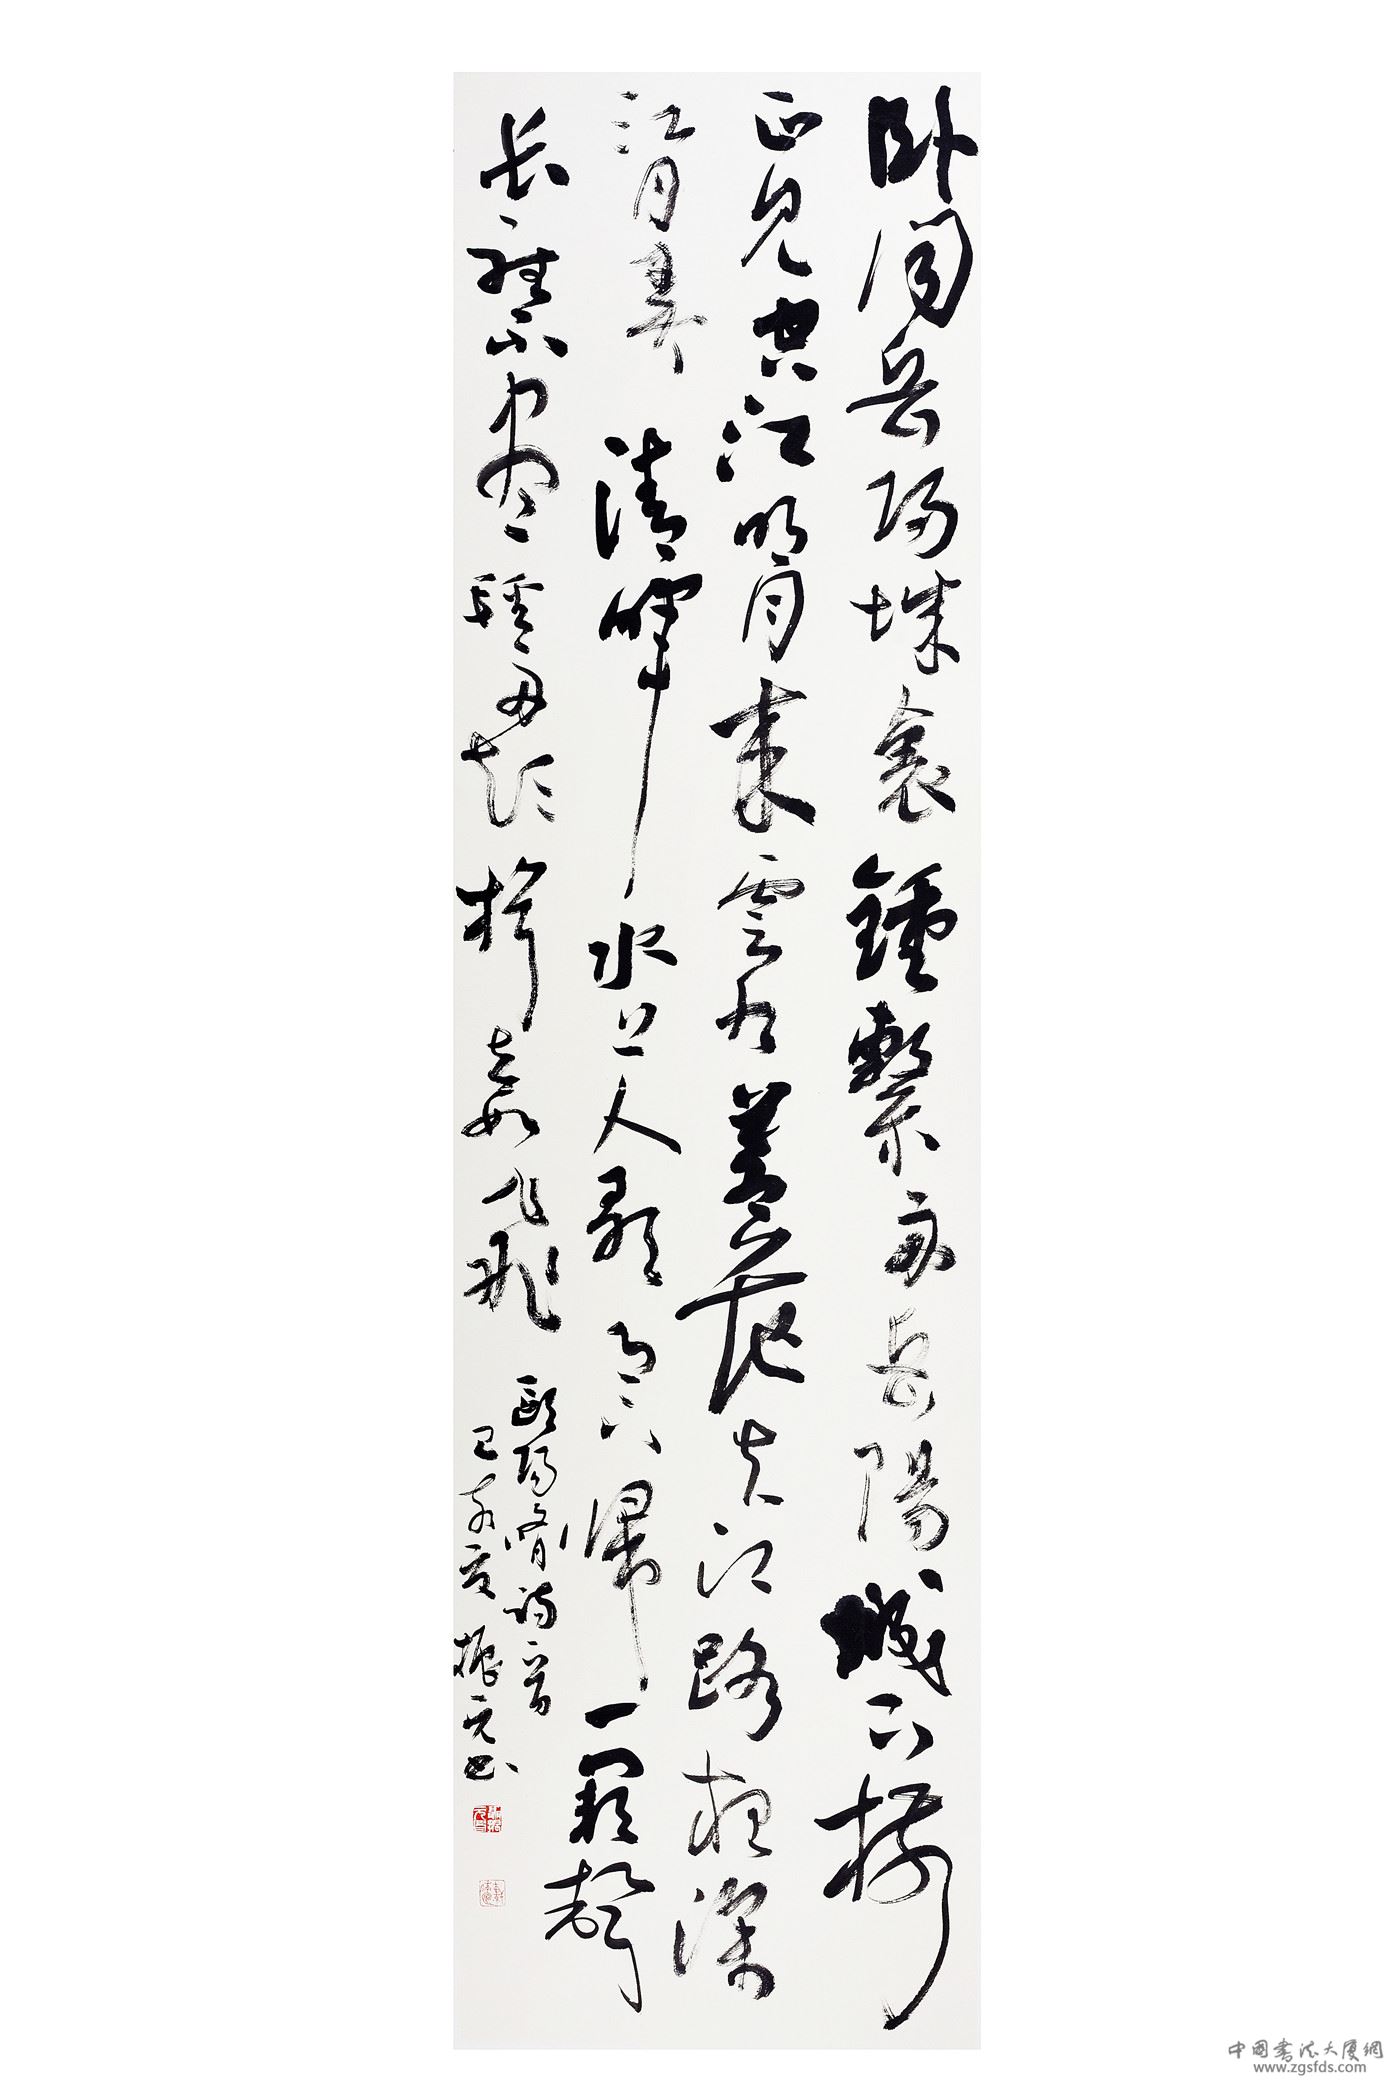 卧闻岳阳城里钟系舟岳阳城下树
正见空江明月来云水苍茫失江路夜深
江月弄清辉水上人歌月下归一阕声
长听不尽轻舟短楫去如飞
欧阳修诗一首
己亥夏振元书
中国书法大厦網
www.zgsfds.com